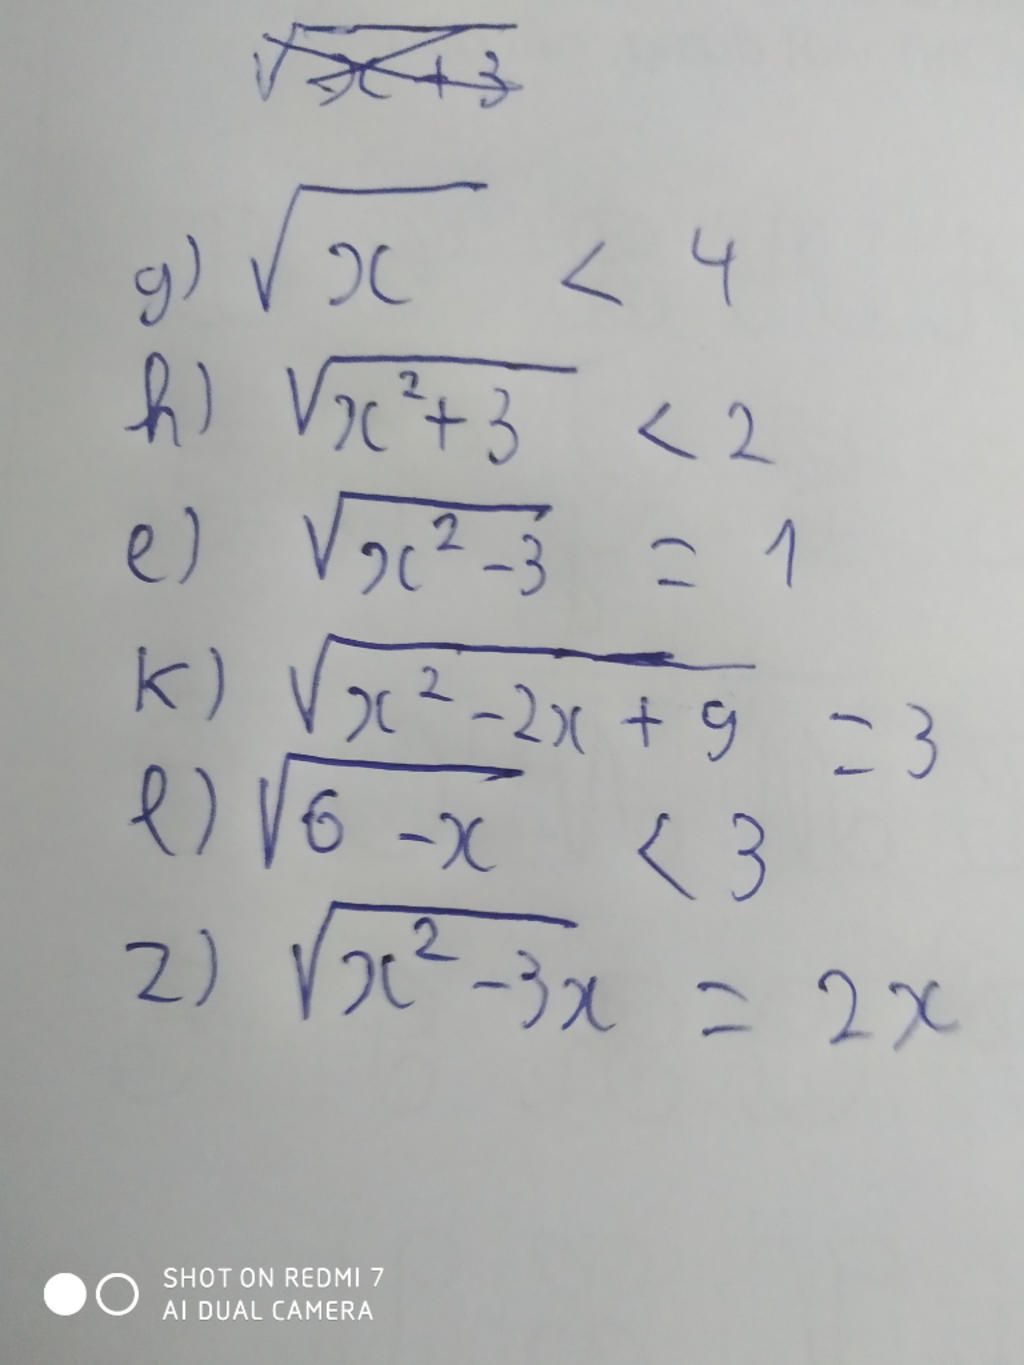 √x+3
g) √x < 4
h) √x²+3 < 2
e) √x²-3 = 1
k) √x²-2x+9 = 3
l) √6-x < 3
z) √x²-3x = 2x
SHOT ON REDMI 7
AI DUAL CAMERA